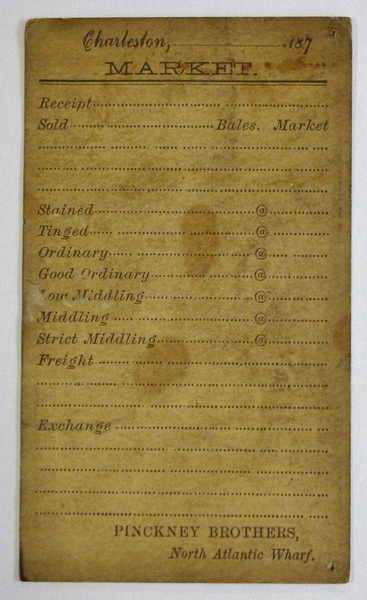 Charleston, 187
MARKET.
Receipt
Sold Bales. Market
Stained @
Tinged @
Ordinary @
Good Ordinary @
Low Middling @
Middling @
Strict Middling @
Freight
Exchange
PINCKNEY BROTHERS,
North Atlantic Wharf.